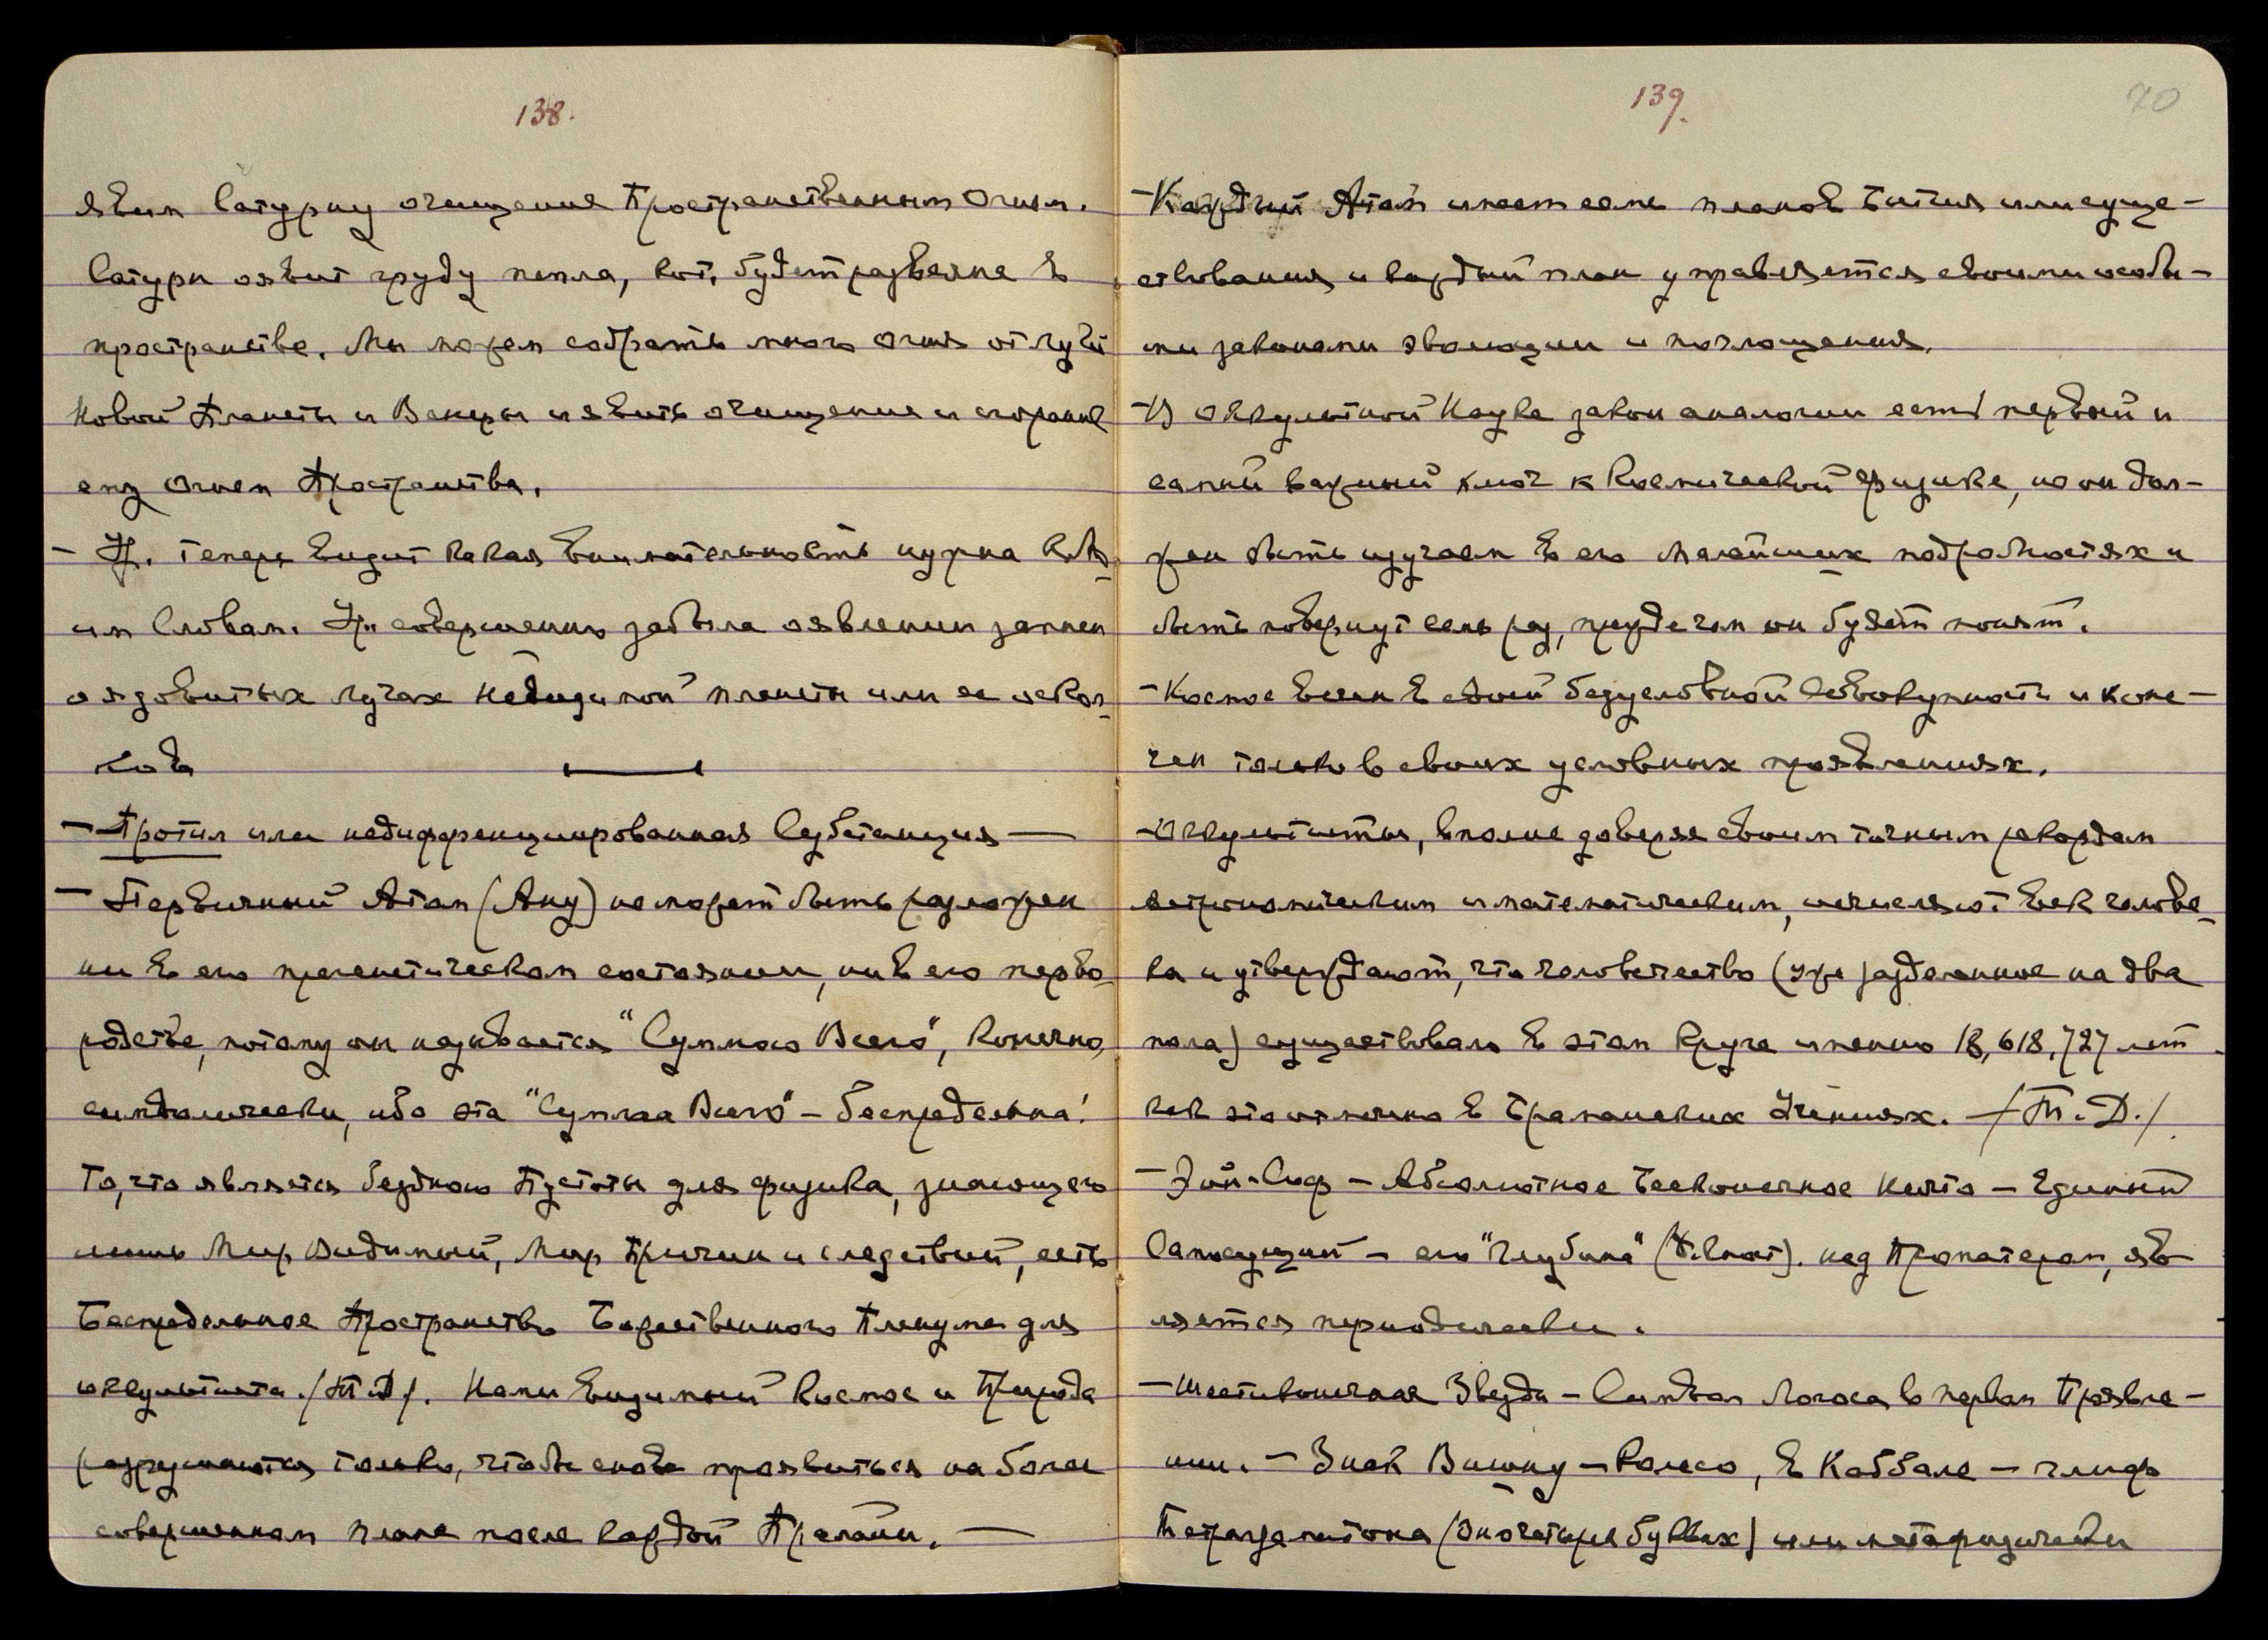 138.
явим Сатурну очищение Пространственным Огнем.
Сатурн оявит груду пепла, кот. будет развеяна в
пространстве. Мы можем собрать много Огня от лучей
Новой Планеты и Венеры и явить очищение и сгорание
ему Огнем Пространства.
– Ур. теперь видит какая внимательность нужна к М-
им Словам. Ур. совершенно забыла оявлении записи
о ядовитых лучах Невидимой планеты или ее оскол-
ков
– Протил или недифференцированная Субстанция –
– Первичный Атом (Ану) не может быть разложен
ни в его прегенетическом состоянии, ни в его перво-
родстве, потому он называется "Суммою Всего", конечно,
символически, ибо эта "Сумма Всего" – беспредельна!
То, что является бездною Пустоты для физика, знающего
лишь Мир Видимый, Мир Причин и следствий, есть
Беспредельное Пространство Божественного Пленума для
оккультиста. /Т.Д./. Наш видимый Космос и Природа
разрушаются только, чтобы снова проявиться на более
совершенном плане после каждой Пралайи. –
139.
70
– Каждый Атом имеет семь планов Бытия или суще-
ствования и каждый план управляется своими особы-
ми законами эволюции и поглощения.
– В Оккультной Науке закон аналогии есть первый и
самый важный ключ к Космической физике, но он дол-
жен быть изучаем в его малейших подробностях и
быть повернут семь раз, прежде чем он будет понят.
– Космос вечен в своей безусловной Совокупности и коне-
чен только в своих условных проявлениях.
– Оккультисты, вполне доверяя своим точным рекордам
астрономическим и математическим, исчисляют век челове-
ка и утверждают, что человечество (уже разделенное на два
пола) существовало в этом Круге именно 18,618,727 лет
как это отмечено в Браманских Учениях. – /Т.Д./.
– Эйн-Соф – Абсолютное Бесконечное Нечто – Единый
Самосущий – его "Глубина" над Пропатором, яв-
ляется периодически.
– Шестиконечная Звезда – Символ Логоса в первом Проявле-
нии. – Знак Вишну – Колесо, в Каббале – глиф
Тетраграматона (В четырех буквах) или метафизически